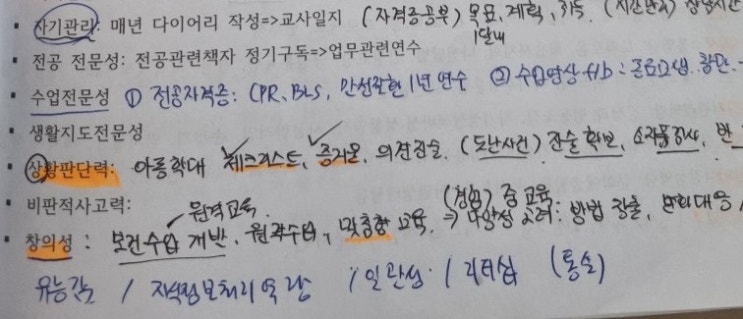 • 자기관리: 매년 다이어리 작성=>교사일지 (자격증공부) 목표, 계획, 취득. (시간관리)
1달내
• 전공 전문성: 전공관련책자 정기구독=>업무관련연수
• 수업전문성 ① 전공자격증: CPR, BLS, 만성질환 1년 연수 ② 수업영상 f/b:
• 생활지도전문성
• 상황판단력: 아동학대 체크리스트, 증거물, 의견진술, (도난사건) 진술 확보, 소지품검사,
• 비판적사고력: 원격교육.
(성) 중 교육
• 창의성: 보건수업 개발, 원격수업, 맞춤형 교육 => 다양성 고려: 방법 창출,
유능감 / 지식정보처리역량 / 일관성 / 리더십 (통솔)